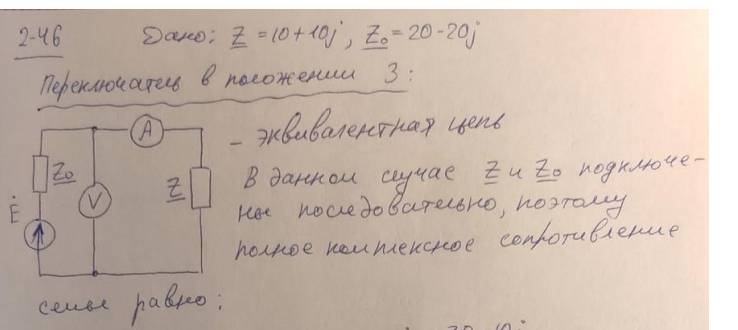 2-46 Дано: Z = 10+10j, Z₀ = 20-20j
Переключатель в положении 3:
A
- эквивалентная цепь
Z₀
В данном случае Z и Z₀ подключе-
V
Z
ны последовательно, поэтому
Ė
полное комплексное сопротивление
равно: